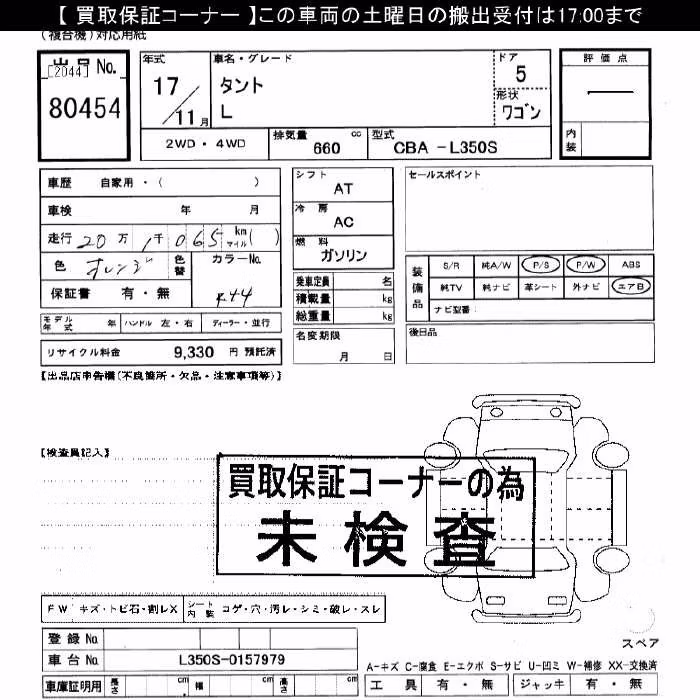 【 買取保証コーナー 】この車両の土曜日の搬出受付は17:00まで
(複合機)対応用紙
出品 No.
[2044]
80454
年式
17
11月
車名・グレード
タント
L
ドア
5
形状
ワゴン
評価点
内装
2WD ・ 4WD
排気量 cc
660
型式
CBA -L350S
車歴 自家用・( )
車検 年 月
走行 20万 1千065 km マイル( )
色 オレンジ 色替 カラーNo.
保証書 有・無 R44
モデル年式 年 ハンドル 左・右 ディーラー・並行
リサイクル料金 9,330 円 預託済
シフト
AT
冷房
AC
燃料
ガソリン
乗車定員 名
積載量 kg
総重量 kg
名変期限
月 日
セールスポイント
装備品
S/R 純A/W P/S P/W ABS
純TV 純ナビ 革シート 外ナビ エアB
ナビ型番
後日品
【出品店申告欄(不良箇所・欠品・注意事項等)】
【検査員記入】
買取保証コーナーの為
未検査
FW キズ・トビ石・割レX シート内装 コゲ・穴・汚レ・シミ・破レ・スレ
登録 No.
車台 No. L350S-0157979
車庫証明用 長さ cm 幅 cm 高さ cm
スペア
A-キズ C-腐食 E-エクボ S-サビ U-凹ミ W-補修 XX-交換済
工具 有・無 ジャッキ 有・無